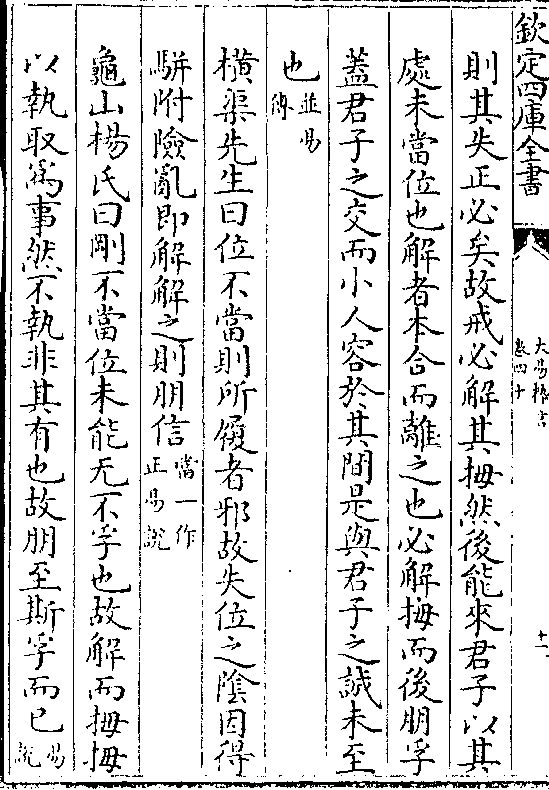 欽定四庫全書
大易擇言
卷四十
十一
則其失正必矣故戒必解其拇然後能來君子以其
處未當位也解者本合而離之也必解拇而後朋孚
蓋君子之交而小人容於其間是與君子之誠未至
也並易傳
橫渠先生曰位不當則所履者邪故失位之隂因得
駢附險亂即解解之則朋信當一作正易說
龜山楊氏曰剛不當位未能无不孚也故解而拇拇
以執取為事然不執非其有也故朋至斯孚而已易說